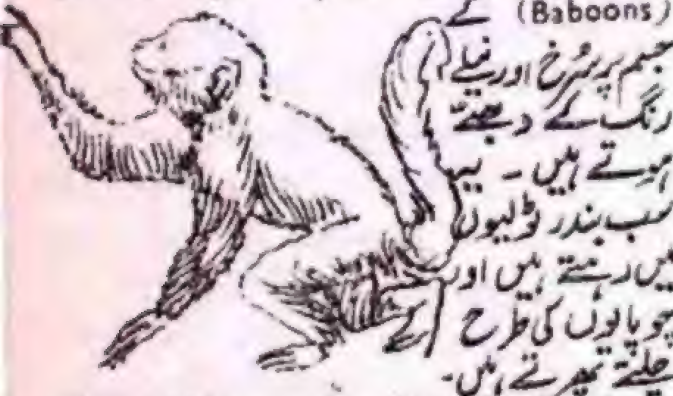 (Baboons) کے
جسم پر سُرخ اور نیلے
رنگ کے دھبے
ہوتے ہیں ۔ یہ
سب بندر ٹولیوں
میں رہتے ہیں اور
چوپایوں کی طرح
چلتے پھرتے ہیں۔